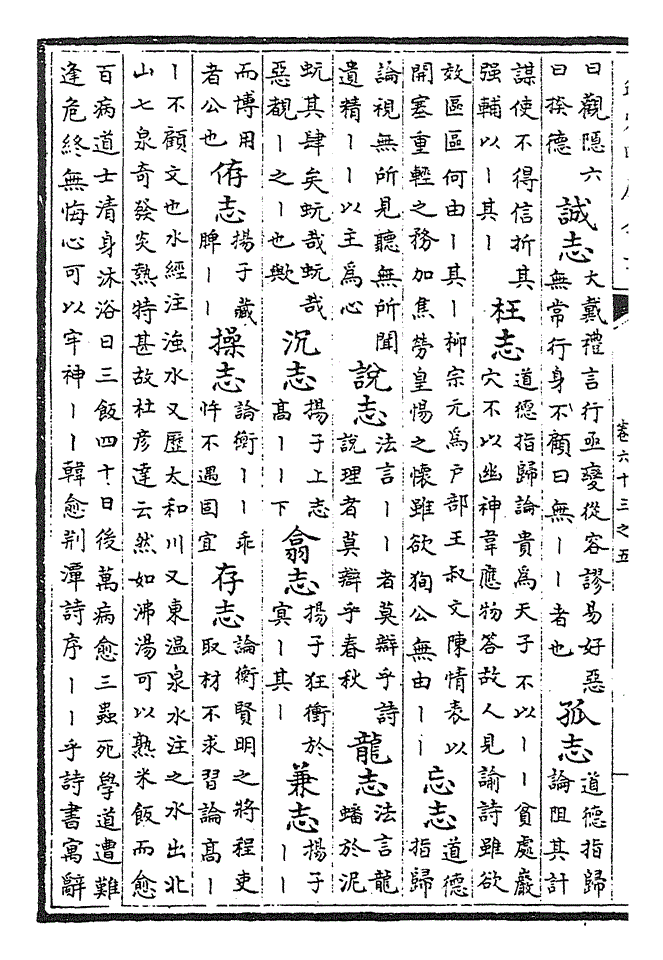 曰觀隱六曰揆德 誠志 大戴禮言行亟變從容謬易好惡無常行身不顧曰無丨丨者也 孤志 道德指歸論阻其計
謀使不得信折其强輔以丨其丨 枉志 道德指歸論貴爲天子不以丨丨貧處巖穴不以幽神韋應物答故人見諭詩雖欲
效區區何由丨其丨柳宗元爲戶部王叔文陳情表以開塞重輕之務加焦勞皇惕之懷雖欲狥公無由丨丨 忘志 道德指歸
論視無所見聽無所聞遺精丨丨以主爲心 說志 法言丨丨者莫辯乎詩說理者莫辯乎春秋 龍志 法言龍蟠於泥
蚖其肆矣蚖哉蚖哉惡覩丨之丨也歟 沉志 揚子上志高丨丨下 翕志 揚子狂衝於冥丨其丨 兼志 揚子丨丨
而博用者公也 侟志 揚子藏脾丨丨 操志 論衡丨丨乖忤不遇固宜 存志 論衡賢明之將程吏取材不求習論高丨
丨不顧文也水經注滍水又歷太和川又東温泉水注之水出北山七泉奇發炎熱特甚故杜彦達云然如沸湯可以熟米飯而愈
百病道士清身沐浴日三飯四十日後萬病愈三蟲死學道遭難逢危終無悔心可以牢神丨丨韓愈荆潭詩序丨丨乎詩書寓辭
卷六十三之五